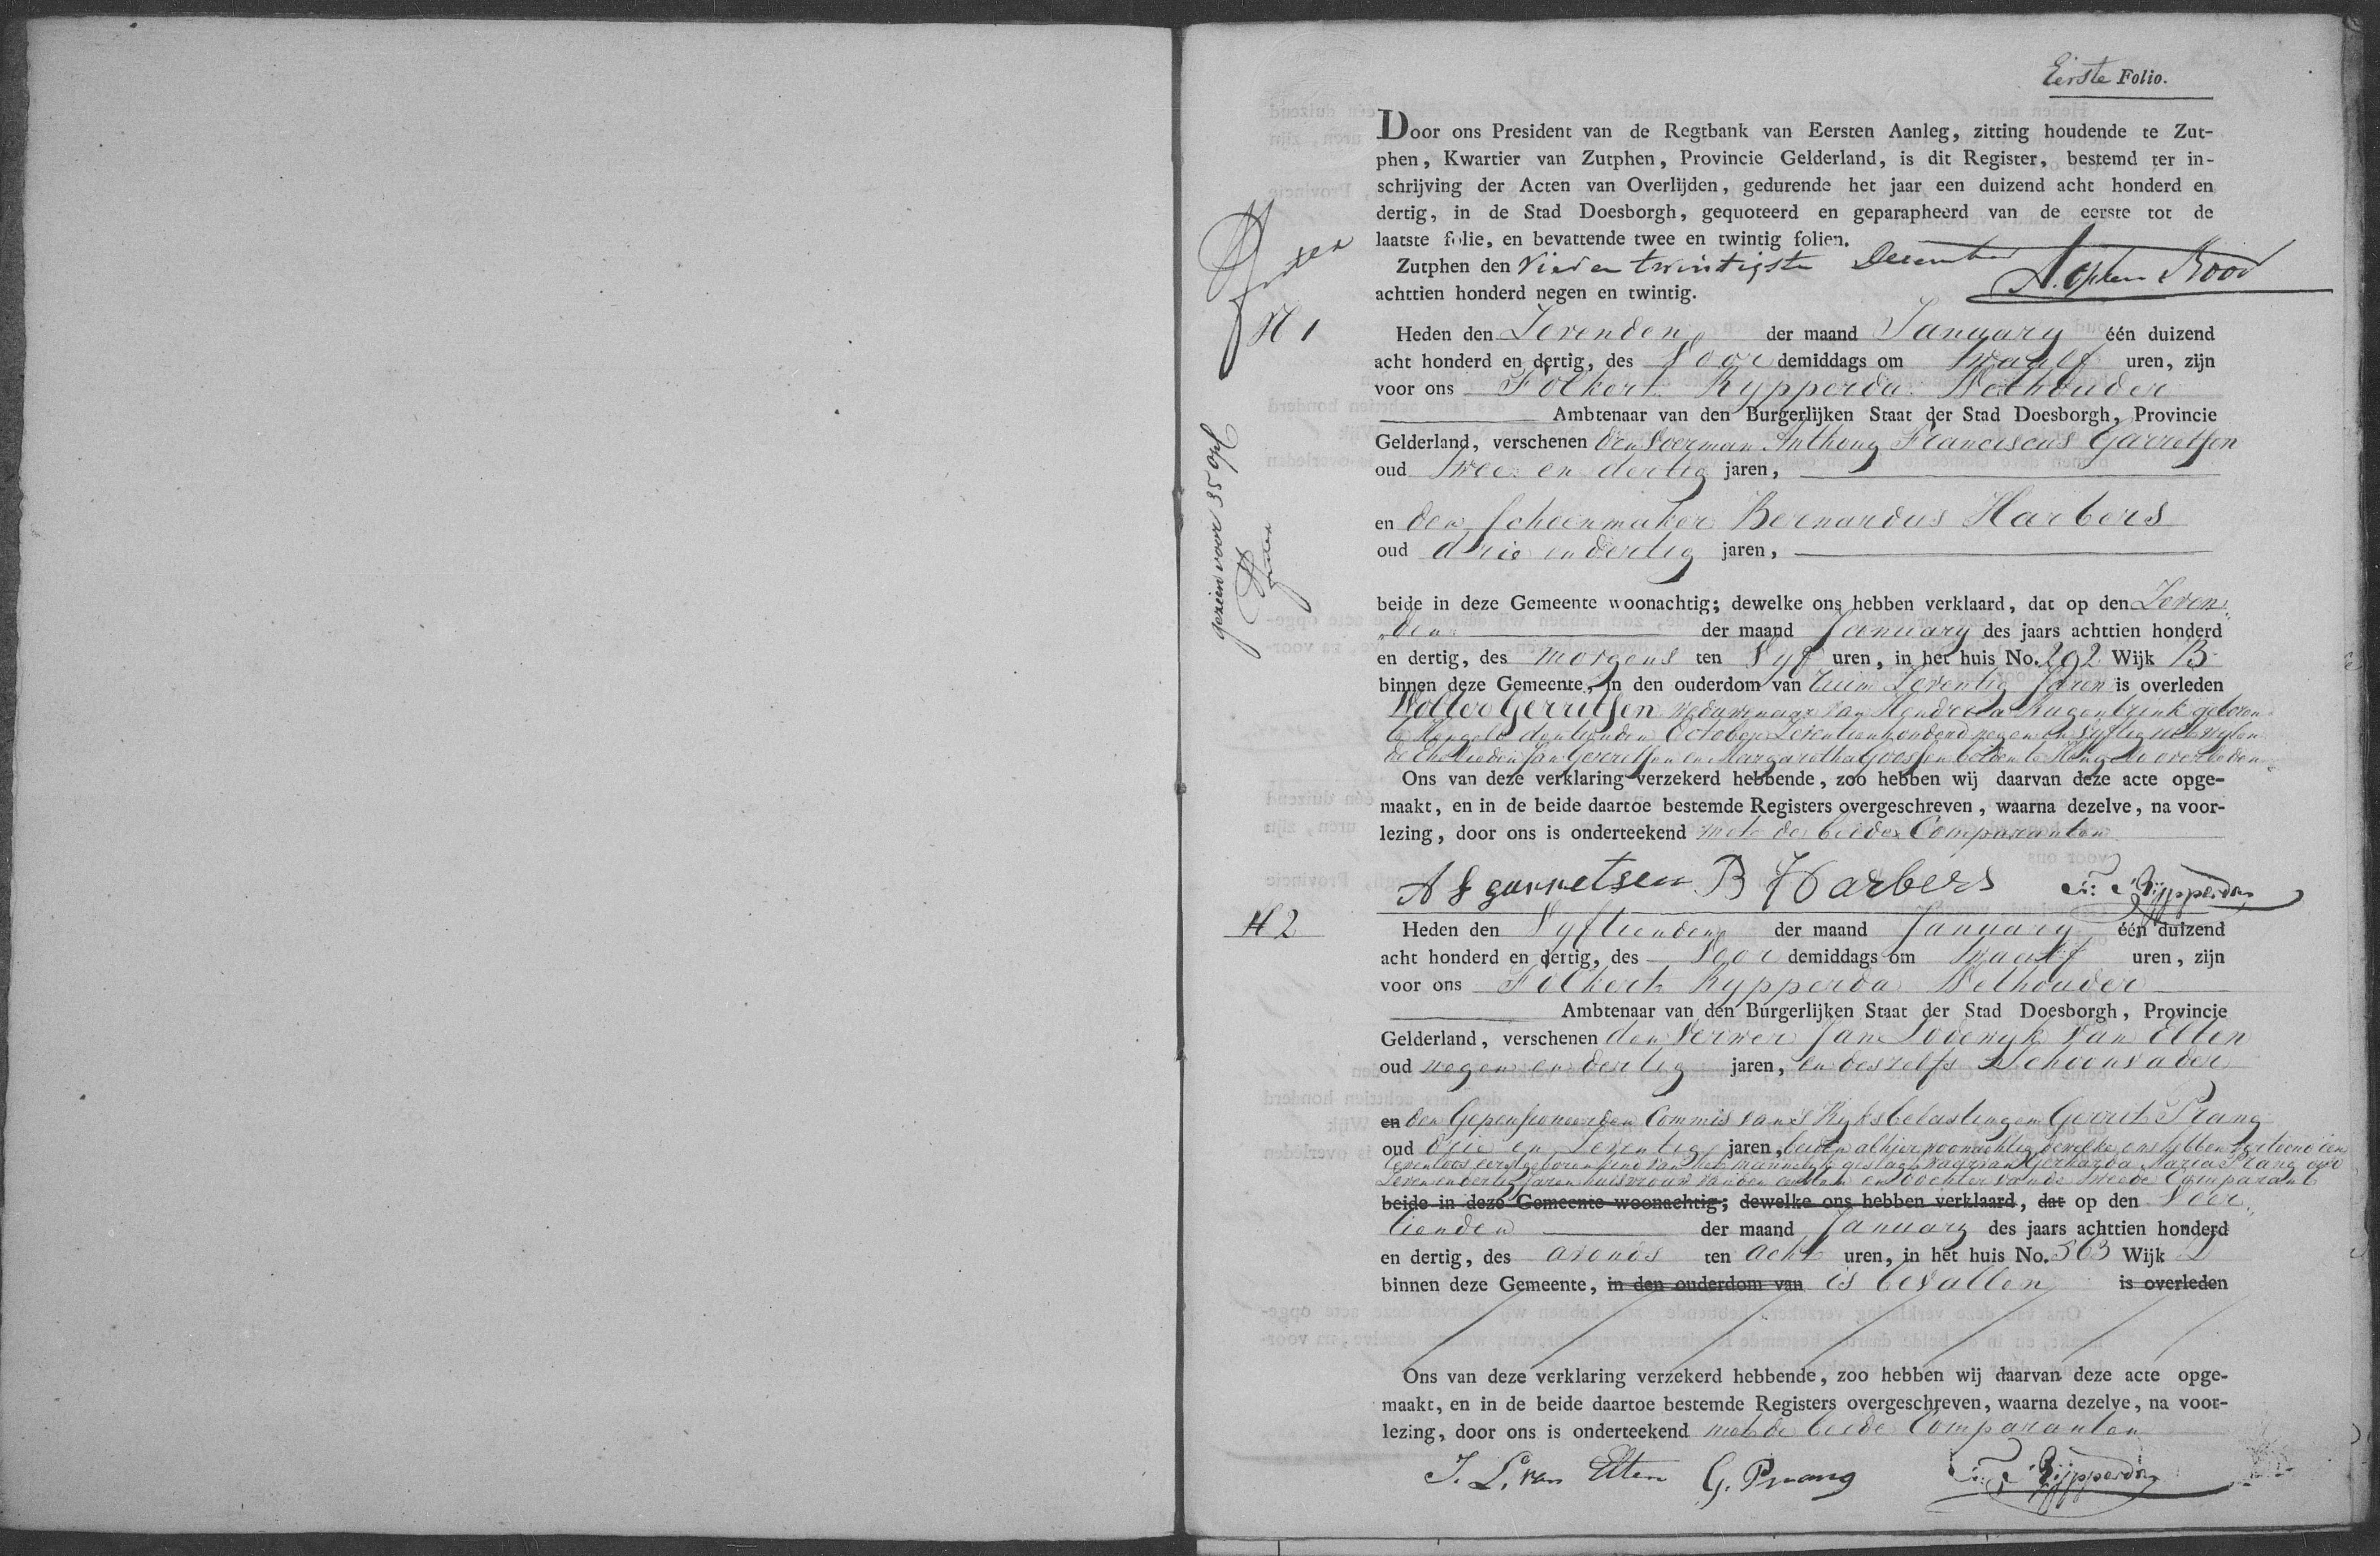 Eerste Folio.
Door ons President van de Regtbank van Eersten Aanleg, zitting houdende te Zut-
phen, Kwartier van Zutphen, Provincie Gelderland, is dit Register, bestemd ter in-
schrijving der Acten van Overlijden, gedurende het jaar een duizend acht honderd en
dertig, in de Stad Doesborgh, gequoteerd en geparapheerd van de eerste tot de
laatste folie, en bevattende twee en twintig folien.
Zutphen den Vier en twintigste December
achttien honderd negen en twintig.
N 1
gezien voor 35
Heden den Zevenden der maand January één duizend
acht honderd en dertig, des Voor demiddags om twaalf uren, zijn
voor ons Folkert Rypperda Wethouder
Ambtenaar van den Burgerlijken Staat der Stad Doesborgh, Provincie
Gelderland, verschenen den Voerman Anthony Franciscus Garretsen
oud twee en dertig jaren,
en den Schoenmaker Bernardus Harbers
oud drie en dertig jaren,
beide in deze Gemeente woonachtig; dewelke ons hebben verklaard, dat op den Zeven
den der maand January des jaars achttien honderd
en dertig, des morgens ten Vyf uren, in het huis No. 292 Wijk B
binnen deze Gemeente, in den ouderdom van ruim Zeventig Jaren is overleden
Wolter Gerritsen weduwenaar van Hendrica geboren
te Hengelo den tienden October Zeventienhonderd negen en Vyftig uit wylen
de Ehelieden Jan Gerritsen en Margaretha Goossen beiden te Hengelo overleden
Ons van deze verklaring verzekerd hebbende, zoo hebben wij daarvan deze acte opge-
maakt, en in de beide daartoe bestemde Registers overgeschreven, waarna dezelve, na voor-
lezing, door ons is onderteekend met de beide Comparanten
A F garretsen B Harbers F: Rijpperda
N 2
Heden den Vyftienden der maand January één duizend
acht honderd en dertig, des Voor demiddags om twaalf uren, zijn
voor ons Folkert Rypperda Wethouder
Ambtenaar van den Burgerlijken Staat der Stad Doesborgh, Provincie
Gelderland, verschenen den Verwer Jan Lodewyk van Elten
oud negen en dertig jaren, en deszelfs Schoonvader
en den Gepensioneerden Commis van 's Ryks belastingen Gerrit Prang
oud drie en Zeventig jaren, beiden alhier woonachtig dewelke ons hebben vertoond een
levenloos eerstgeboren kind van het mannelyk geslagt waarvan Gerharda Maria Prang oud
Zeven en dertig Jaren huisvrouw van den eersten en dochter van de tweede Comparant
beide in deze Gemeente woonachtig; dewelke ons hebben verklaard, dat op den Veer
tienden der maand January des jaars achttien honderd
en dertig, des avonds ten acht uren, in het huis No. 363 Wijk
binnen deze Gemeente, in den ouderdom van is bevallen is overleden
Ons van deze verklaring verzekerd hebbende, zoo hebben wij daarvan deze acte opge-
maakt, en in de beide daartoe bestemde Registers overgeschreven, waarna dezelve, na voor-
lezing, door ons is onderteekend met de beide Comparanten
J. L. van Elten G. Prang F: Rijpperda